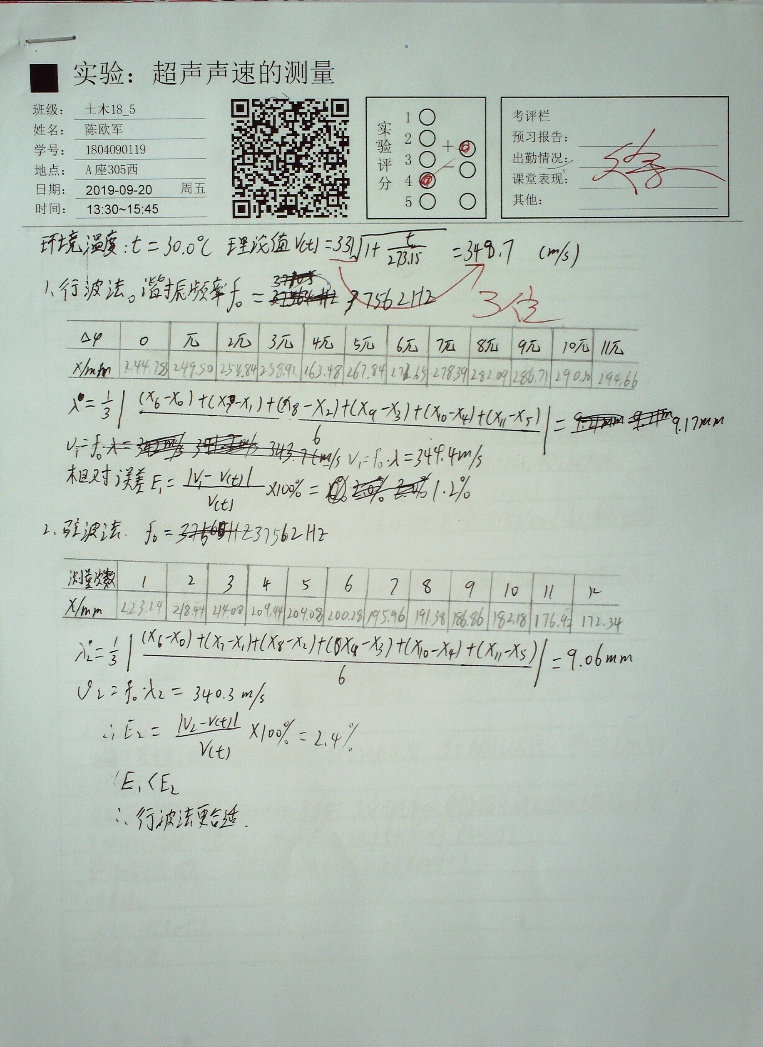 实验：超声声速的测量
班级：土木18_5
姓名：陈欧军
学号：1804090119
地点：A座305西
日期：2019-09-20 周五
时间：13:30~15:45
实验评分
1
2
3
4
5
+
−
考评栏
预习报告：
出勤情况：
课堂表现：
其他：
环境温度：t=30.0℃ 理论值V(t)=331√1+t/273.15 =348.7 (m/s)
3位
1、行波法。谐振频率f₀= 37562HZ
Δφ 0 π 2π 3π 4π 5π 6π 7π 8π 9π 10π 11π
X/mm 244.78 249.50 254.84 258.92 263.48 267.84 278.39 282.09 286.71 294.66
λ=1/3|(X₆-X₀)+(X₇-X₁)+(X₈-X₂)+(X₉-X₃)+(X₁₀-X₄)+(X₁₁-X₅)/6|= 9.17mm
V₁=f₀·λ= 343.76m/s V₁=f₀·λ=349.4m/s
相对误差E₁=|V₁-V(t)|/V(t)×100%= 1.2%
2、驻波法. f₀= 37562HZ
测量次数 1 2 3 4 5 6 7 8 9 10 11 12
X/mm 223.14 218.44 214.00 209.44 204.08 200.28 195.96 191.38 186.86 182.18 176.92 172.34
λ₂=1/3|(X₆-X₀)+(X₇-X₁)+(X₈-X₂)+(X₉-X₃)+(X₁₀-X₄)+(X₁₁-X₅)/6|=9.06mm
V₂=f₀·λ₂=340.3m/s
∴E₂=|V₂-V(t)|/V(t)×100%=2.4%
E₁<E₂
∴行波法更合适.